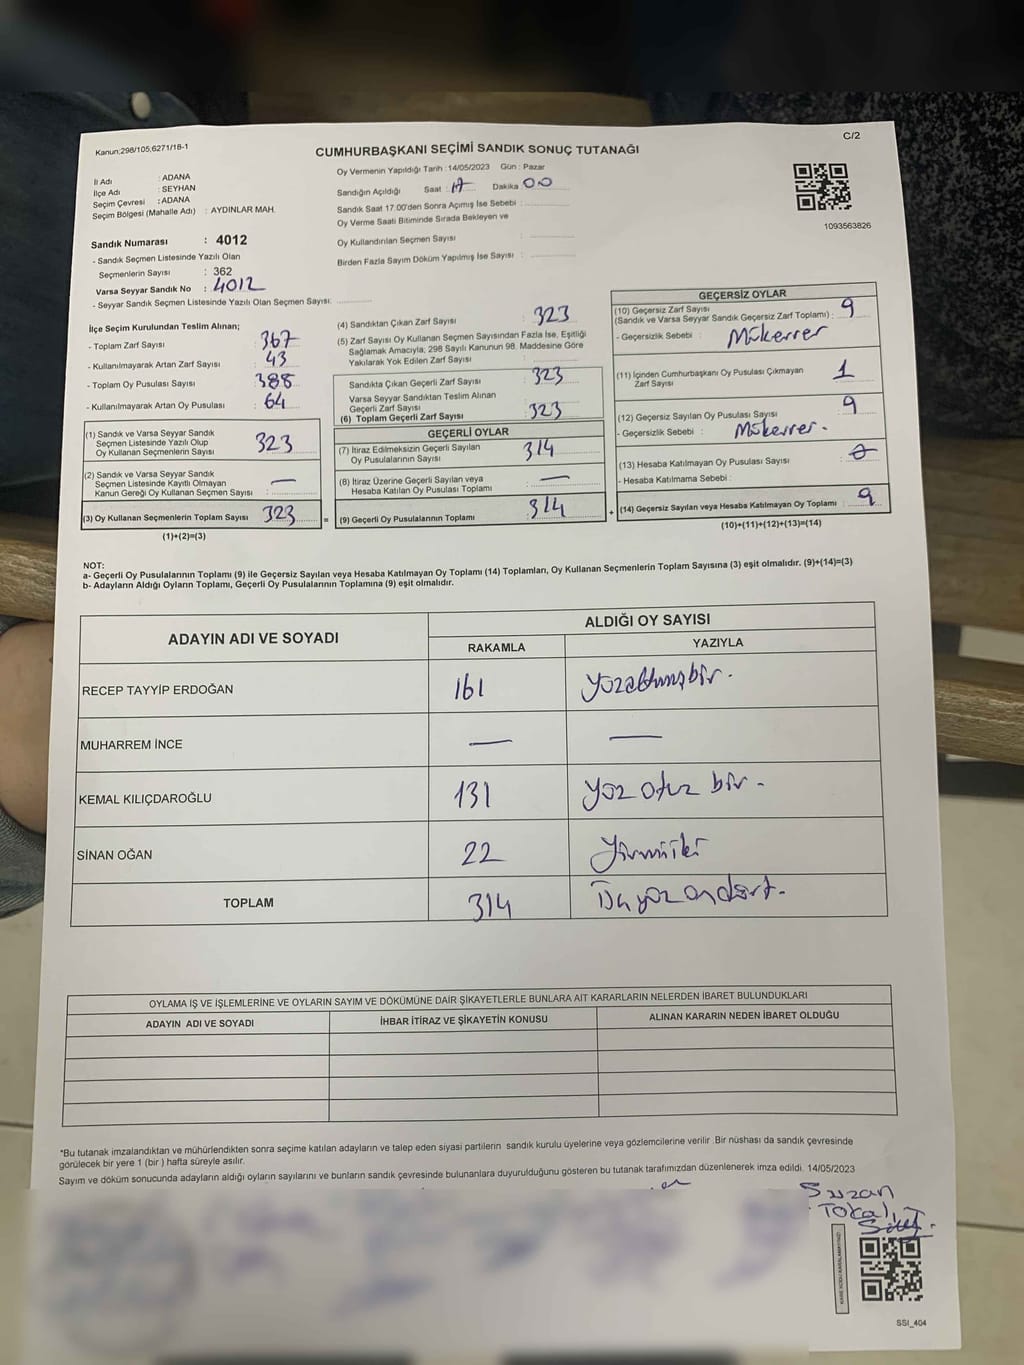 Kanun:298/105,6271/18-1
C/2
CUMHURBAŞKANI SEÇİMİ SANDIK SONUÇ TUTANAĞI
İl Adı : ADANA
İlçe Adı : SEYHAN
Seçim Çevresi : ADANA
Seçim Bölgesi (Mahalle Adı) : AYDINLAR MAH.
Sandık Numarası : 4012
- Sandık Seçmen Listesinde Yazılı Olan
Seçmenlerin Sayısı : 362
Varsa Seyyar Sandık No : 4012
- Seyyar Sandık Seçmen Listesinde Yazılı Olan Seçmen Sayısı:
Oy Vermenin Yapıldığı Tarih : 14/05/2023 Gün : Pazar
Sandığın Açıldığı Saat : 17 Dakika 00
Sandık Saat 17.00'den Sonra Açımış İse Sebebi :
Oy Verme Saati Bitiminde Sırada Bekleyen ve
Oy Kullandırılan Seçmen Sayısı :
Birden Fazla Sayım Döküm Yapılmış İse Sayısı :
1093563826
İlçe Seçim Kurulundan Teslim Alınan;
- Toplam Zarf Sayısı : 367
- Kullanılmayarak Artan Zarf Sayısı : 43
- Toplam Oy Pusulası Sayısı : 388
- Kullanılmayarak Artan Oy Pusulası : 64
(1) Sandık ve Varsa Seyyar Sandık
Seçmen Listesinde Yazılı Olup
Oy Kullanan Seçmenlerin Sayısı : 323
(2) Sandık ve Varsa Seyyar Sandık
Seçmen Listesinde Kayıtlı Olmayan
Kanun Gereği Oy Kullanan Seçmen Sayısı : —
(3) Oy Kullanan Seçmenlerin Toplam Sayısı 323
(1)+(2)=(3)
(4) Sandıktan Çıkan Zarf Sayısı : 323
(5) Zarf Sayısı Oy Kullanan Seçmen Sayısından Fazla İse, Eşitliği
Sağlamak Amacıyla; 298 Sayılı Kanunun 98. Maddesine Göre
Yakılarak Yok Edilen Zarf Sayısı :
Sandıkta Çıkan Geçerli Zarf Sayısı : 323
Varsa Seyyar Sandıktan Teslim Alınan
Geçerli Zarf Sayısı
(6) Toplam Geçerli Zarf Sayısı : 323
GEÇERLİ OYLAR
(7) İtiraz Edilmeksizin Geçerli Sayılan
Oy Pusulalarının Sayısı : 314
(8) İtiraz Üzerine Geçerli Sayılan veya
Hesaba Katılan Oy Pusulası Toplamı : —
= (9) Geçerli Oy Pusulalarının Toplamı : 314
GEÇERSİZ OYLAR
(10) Geçersiz Zarf Sayısı
(Sandık ve Varsa Seyyar Sandık Geçersiz Zarf Toplamı) : 9
- Geçersizlik Sebebi : Mükerrer
(11) İçinden Cumhurbaşkanı Oy Pusulası Çıkmayan
Zarf Sayısı : 1
(12) Geçersiz Sayılan Oy Pusulası Sayısı : 9
- Geçersizlik Sebebi : Mükerrer.
(13) Hesaba Katılmayan Oy Pusulası Sayısı :
- Hesaba Katılmama Sebebi :
+ (14) Geçersiz Sayılan veya Hesaba Katılmayan Oy Toplamı : 9
(10)+(11)+(12)+(13)=(14)
NOT:
a- Geçerli Oy Pusulalarının Toplamı (9) ile Geçersiz Sayılan veya Hesaba Katılmayan Oy Toplamı (14) Toplamları, Oy Kullanan Seçmenlerin Toplam Sayısına (3) eşit olmalıdır. (9)+(14)=(3)
b- Adayların Aldığı Oyların Toplamı, Geçerli Oy Pusulalarının Toplamına (9) eşit olmalıdır.
ADAYIN ADI VE SOYADI
ALDIĞI OY SAYISI
RAKAMLA YAZIYLA
RECEP TAYYİP ERDOĞAN 161 Yüzaltmışbir.
MUHARREM İNCE — —
KEMAL KILIÇDAROĞLU 131 Yüz otuz bir.
SİNAN OĞAN 22 Yirmiiki
TOPLAM 314 Üçyüz ondört.
OYLAMA İŞ VE İŞLEMLERİNE VE OYLARIN SAYIM VE DÖKÜMÜNE DAİR ŞİKAYETLERLE BUNLARA AİT KARARLARIN NELERDEN İBARET BULUNDUKLARI
ADAYIN ADI VE SOYADI İHBAR İTİRAZ VE ŞİKAYETİN KONUSU ALINAN KARARIN NEDEN İBARET OLDUĞU
*Bu tutanak imzalandıktan ve mühürlendikten sonra seçime katılan adayların ve talep eden siyasi partilerin sandık kurulu üyelerine veya gözlemcilerine verilir .Bir nüshası da sandık çevresinde
görülecek bir yere 1 (bir ) hafta süreyle asılır.
Sayım ve döküm sonucunda adayların aldığı oyların sayılarını ve bunların sandık çevresinde bulunanlara duyurulduğunu gösteren bu tutanak tarafımızdan düzenlenerek imza edildi. 14/05/2023
Suzan
SSI_404